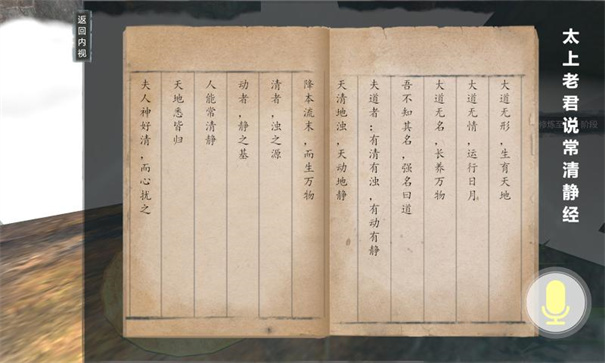 太上老君说常清静经
大道无形，生育天地
大道无情，运行日月
大道无名，长养万物
吾不知其名，强名曰道
夫道者：有清有浊，有动有静
天清地浊，天动地静
降本流末，而生万物
清者，浊之源
动者，静之基
人能常清静
天地悉皆归
夫人神好清，而心扰之
返回内视